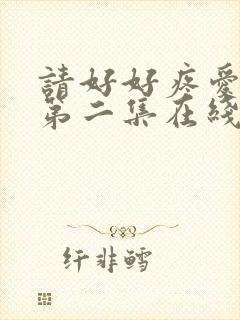 請好好疼愛
第二集在綫
纤非鳕